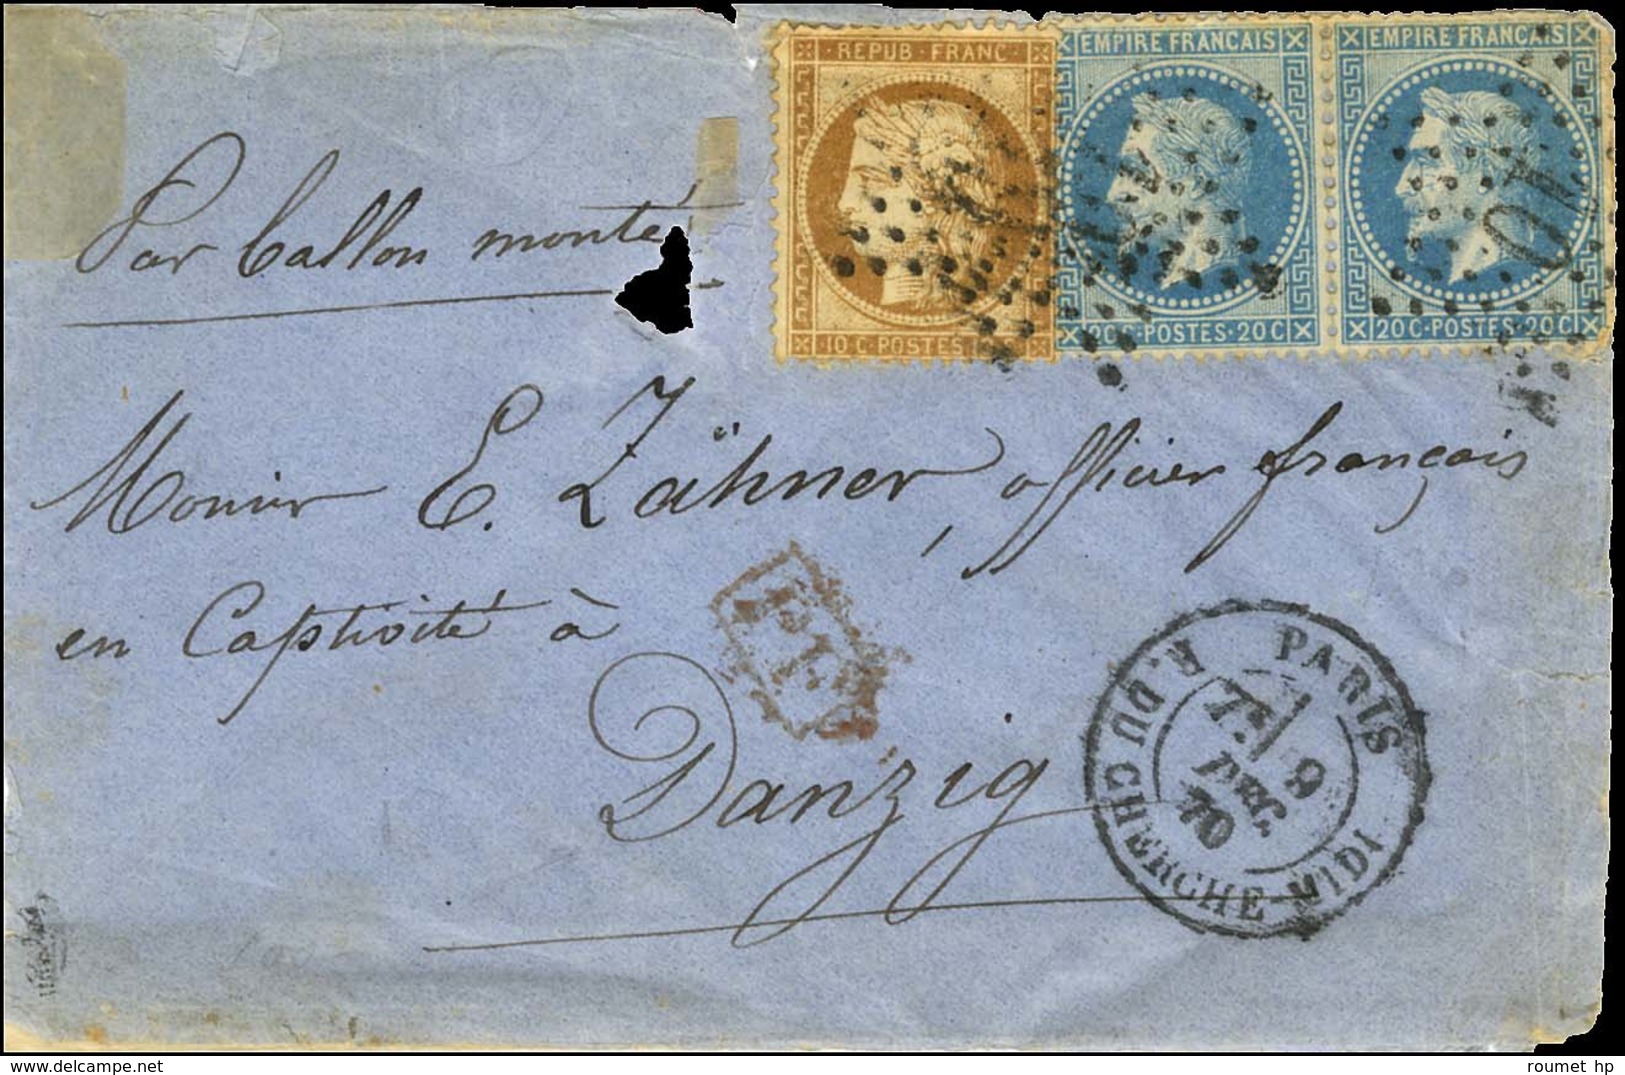 REPUB FRANC
10 C POSTES
EMPIRE FRANÇAIS
20 C · POSTES · 20 C
EMPIRE FRANÇAIS
20 C · POSTES · 20 C
Par ballon monté
Monsieur E. Zähner, officier français
en Captivité à
Danzig
PARIS
R. DU CHERCHE-MIDI
7E
9
DEC
70
roumet hp